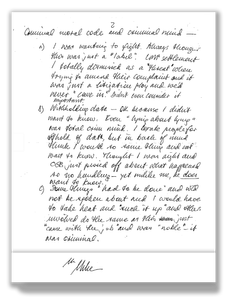 2
Criminal moral code and criminal mind —
a) I was wanting to fight. Always thought
this was just a "label". Last settlement
I totally dismissed as a "threat" when
trying to amend their complaint and it
was just a litigation ploy and we'd
never "cave in". Didn't even consider it
important.
b) Withholding data — OK because I didn't
want to know. Even "lying about lying"
was total crim mind. I broke people for
withholds of data, but in back of mind
think I want to do same thing and not
want to know. Thought I was right and
COB, just pissed off about what happened
so no handling — yet unlike me, he does
want to know.
c) Some things "had to be done" and will
not be spoken about and I would have
to take heat and "suck it up" and others
involved do the same as this just
"came with the job" and was "noble". It
was criminal.